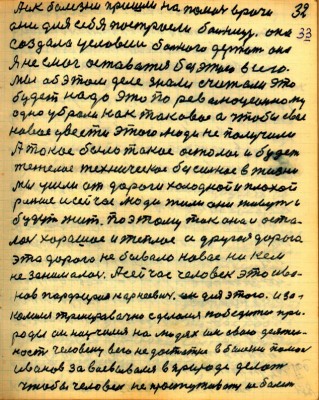 А как болезни пришли на помощ врачи 32
они для себя построели больницу. она 33
создала условии больного держат она
Я не смог оставатся без этого всего.
мы об этом деле знали считали это
будет надо это по революционному
одно убрали как таковое а чтобы свое
новое увести этого люди не получили
А такое было такое осталос и будет
тяжелое техническое бусиное в жизни
мы ушли от дороги холодной и плохой
раньше и сейчас люди жили они живут и
будут жит. поэтому так она и оста-
лас хорошое и теплое а другая дорога
эта дорога не бывало новое ни кем
не занималас. А сейчас человек это ива-
нов парфирий карнеевич. он для этого. и за-
калился тренировачно сделался победител при-
роды он научился на людях их свою деятел-
ност человеку всего не достатке в болезни помог
иванов завоевывался в природе делат
чтобы человек не простуживался не болел